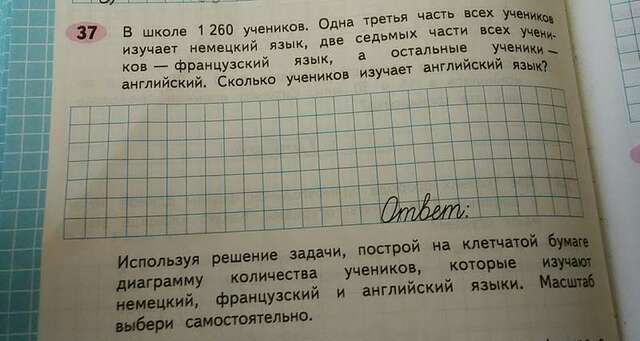 37 В школе 1 260 учеников. Одна третья часть всех учеников
изучает немецкий язык, две седьмых части всех учени-
ков — французский язык, а остальные ученики —
английский. Сколько учеников изучает английский язык?
Ответ:
Используя решение задачи, построй на клетчатой бумаге
диаграмму количества учеников, которые изучают
немецкий, французский и английский языки. Масштаб
выбери самостоятельно.